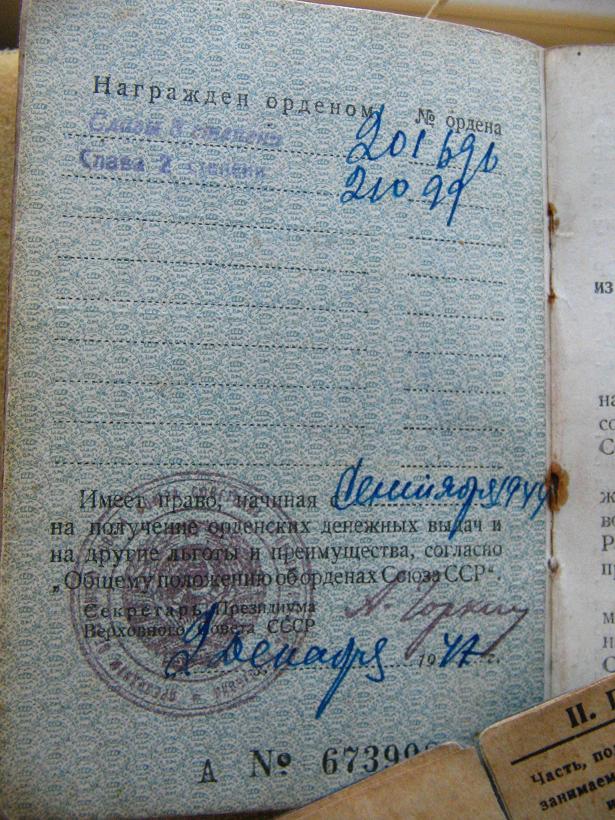 Награжден орденом № ордена
Славы 3 степени 201696
Слава 2 степени 21099
Имеет право, начиная с Сентября 1944
на получение орденских денежных выдач и
на другие льготы и преимущества, согласно
„Общему положению об орденах Союза ССР“.
Секретарь Президиума А. Горкин
Верховного Совета СССР
2 декабря 1947 г.
А № 67390
из
II.
Часть, по
занимаем